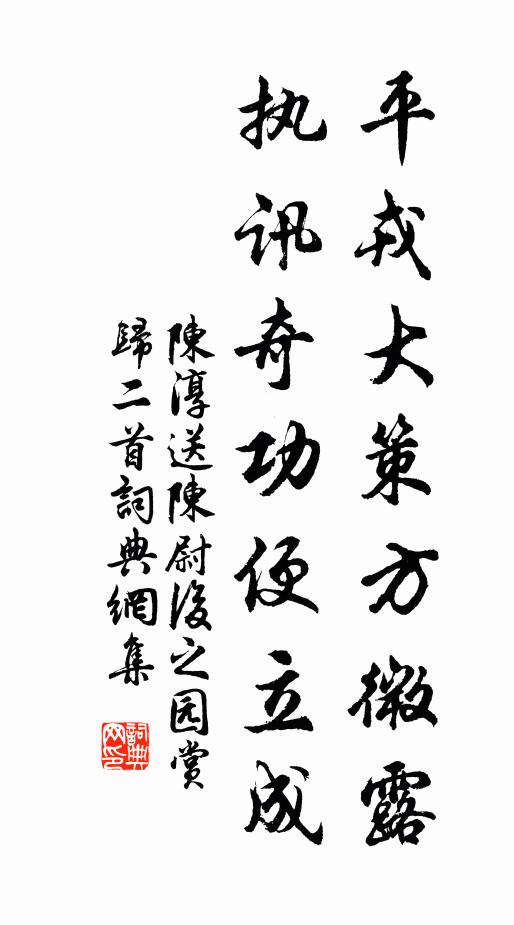 平戎大策方微露
执讯奇功便立成
陳淳送陳尉復之园赏
歸二首詞典網集
詞典网印